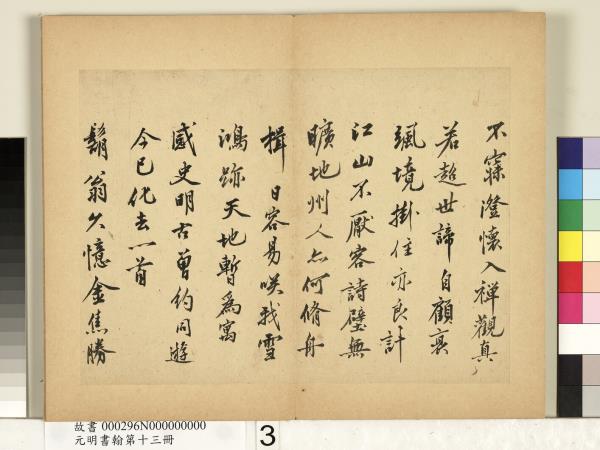 不寐澄懷入禪觀真
若超世諦自顧衰
颯境掛住亦良計
江山不厭客詩壁無
曠地州人亦何脩舟
楫日容易咲我雪
鴻跡天地暫為寓
盛史明古曾約同遊
今已化去一首
鬍翁久憶金焦勝
故書 000296N000000000
元明書翰第十三冊
3